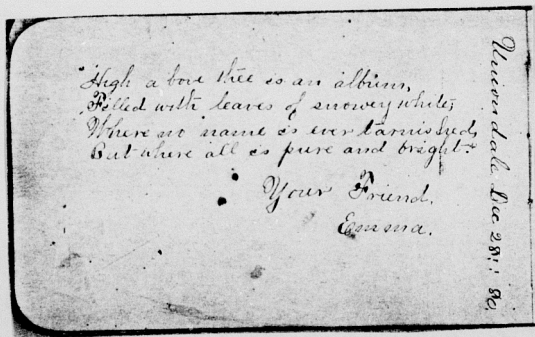 High a bove thee is an album,
Filled with leaves of snowey white,
Where no name is ever tarnished,
But where all is pure and bright.
Your Friend.
Emma.
Uniondale Dec 28" 80.